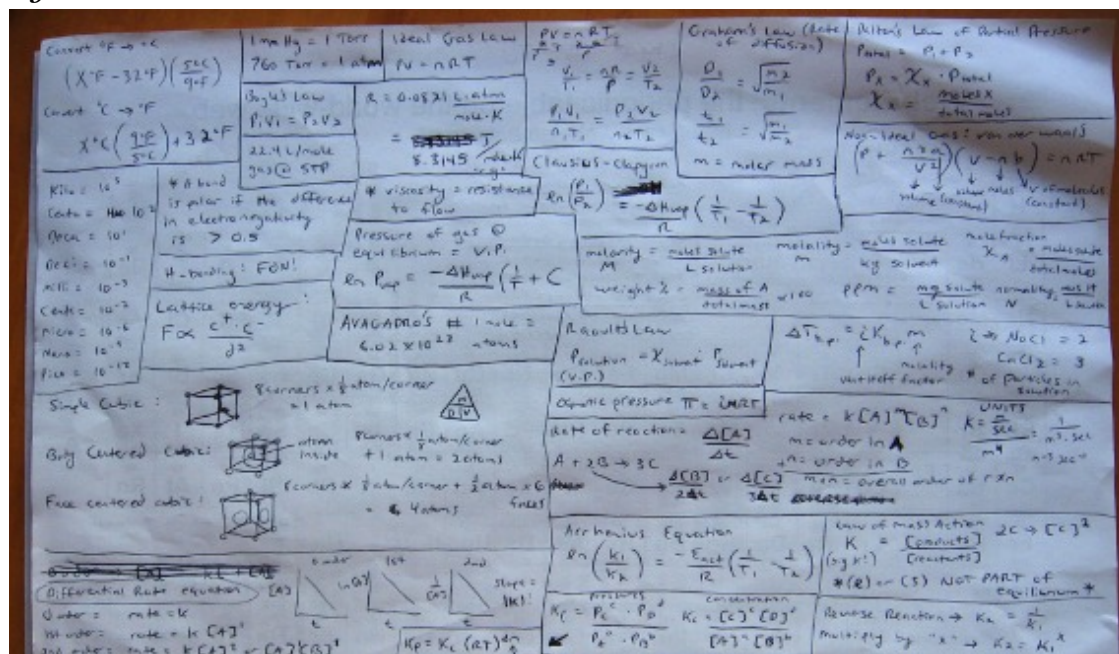 Convert °F → °C
(X°F - 32°F)(5°C/9°F)
Convert °C → °F
X°C(9°F/5°C) + 32°F
1mm Hg = 1 Torr
760 Torr = 1 atm
Boyle's Law
P₁V₁ = P₂V₂
22.4 L/mole
gas @ STP
Ideal Gas Law
PV = nRT
R = 0.0821 L·atm/mole·K
= J
8.3145
PV = nRT
V₁/T₁ = nR/P = V₂/T₂
P₁V₁/n₁T₁ = P₂V₂/n₂T₂
Clausius-Clapyron
ln(P₁/P₂) = -ΔHvap/R (1/T₁ - 1/T₂)
Graham's Law (Rate
of diffusion)
D₁/D₂ = √m₂/m₁
t₁/t₂ = √m₁/m₂
m = molar mass
Dalton's Law of Partial Pressure
Ptotal = P₁ + P₂
Pₓ = Xₓ · Ptotal
Xₓ = moles x/total moles
Non-Ideal Gas: van der waals
(P + n²a/V²)(V - nb) = nRT
volume (constant)
(constant)
Kilo = 10³
10²
Deca = 10¹
Deci = 10⁻¹
Milli = 10⁻³
Centi = 10⁻²
Micro = 10⁻⁶
Nano = 10⁻⁹
Pico = 10⁻¹²
* A bond
is polar if the difference
in electronegativity
is > 0.5
H-bonding: FON!
Lattice energy:
F∝ c⁺·c⁻/d²
* viscosity = resistance
to flow
Pressure of gas @
equilibrium = V.P.
ln Pvap = -ΔHvap/R (1/T + C
AVAGADRO'S # 1 mole =
6.02 x 10²³ atoms
molarity = moles solute/L solution
M
molality = moles solute/kg solvent
m
mole fraction
X_A = moles solute/total moles
weight % = mass of A/total mass x100
ppm = mg solute/L solution
normality
N
Raoult's Law
Psolution = Xsolvent · Psolvent
(V.P.)
ΔTb.p. = iKb.p. m
molality
van't hoff factor
i → NaCl = 2
CaCl₂ = 3
# of particles in
solution
Osmotic pressure π = iMRT
Simple Cubic:
8 corners x ⅛ atom/corner
= 1 atom
Body Centered Cubic:
atom
inside
8 corners x ⅛ atom/corner
+ 1 atom = 2 atoms
Face centered cubic:
8 corners x ⅛ atom/corner + ½ atom x 6
faces
= 4 atoms
Rate of reaction = Δ[A]/Δt
A + 2B → 3C
Δ[B]/2Δt or Δ[C]/3Δt
rate = k[A]ᵐ[B]ⁿ
m = order in A
n = order in B
m+n = overall order of rxn
UNITS
Arrhenius Equation
ln(k₁/k₂) = -Eact/R (1/T₁ - 1/T₂)
Law of Mass Action
K = [products]/[reactants]
2C → [C]²
*(l) or (s) NOT PART of
equilibrium *
Differential Rate equation
0 order = rate = k
1st order = rate = k[A]¹
2nd order = rate = k[A]² or [A]¹[B]¹
0 order
[A]
t
1st
ln[A]
t
2nd
1/[A]
t
slope =
|k|
Kp = Kc (RT)
products
concentration
Kc = [C]ᶜ[D]ᵈ/[A]ᵃ[B]ᵇ
Reverse Reaction → K₂ = 1/K₁
Multiply by "x" → K₂ = K₁ˣ